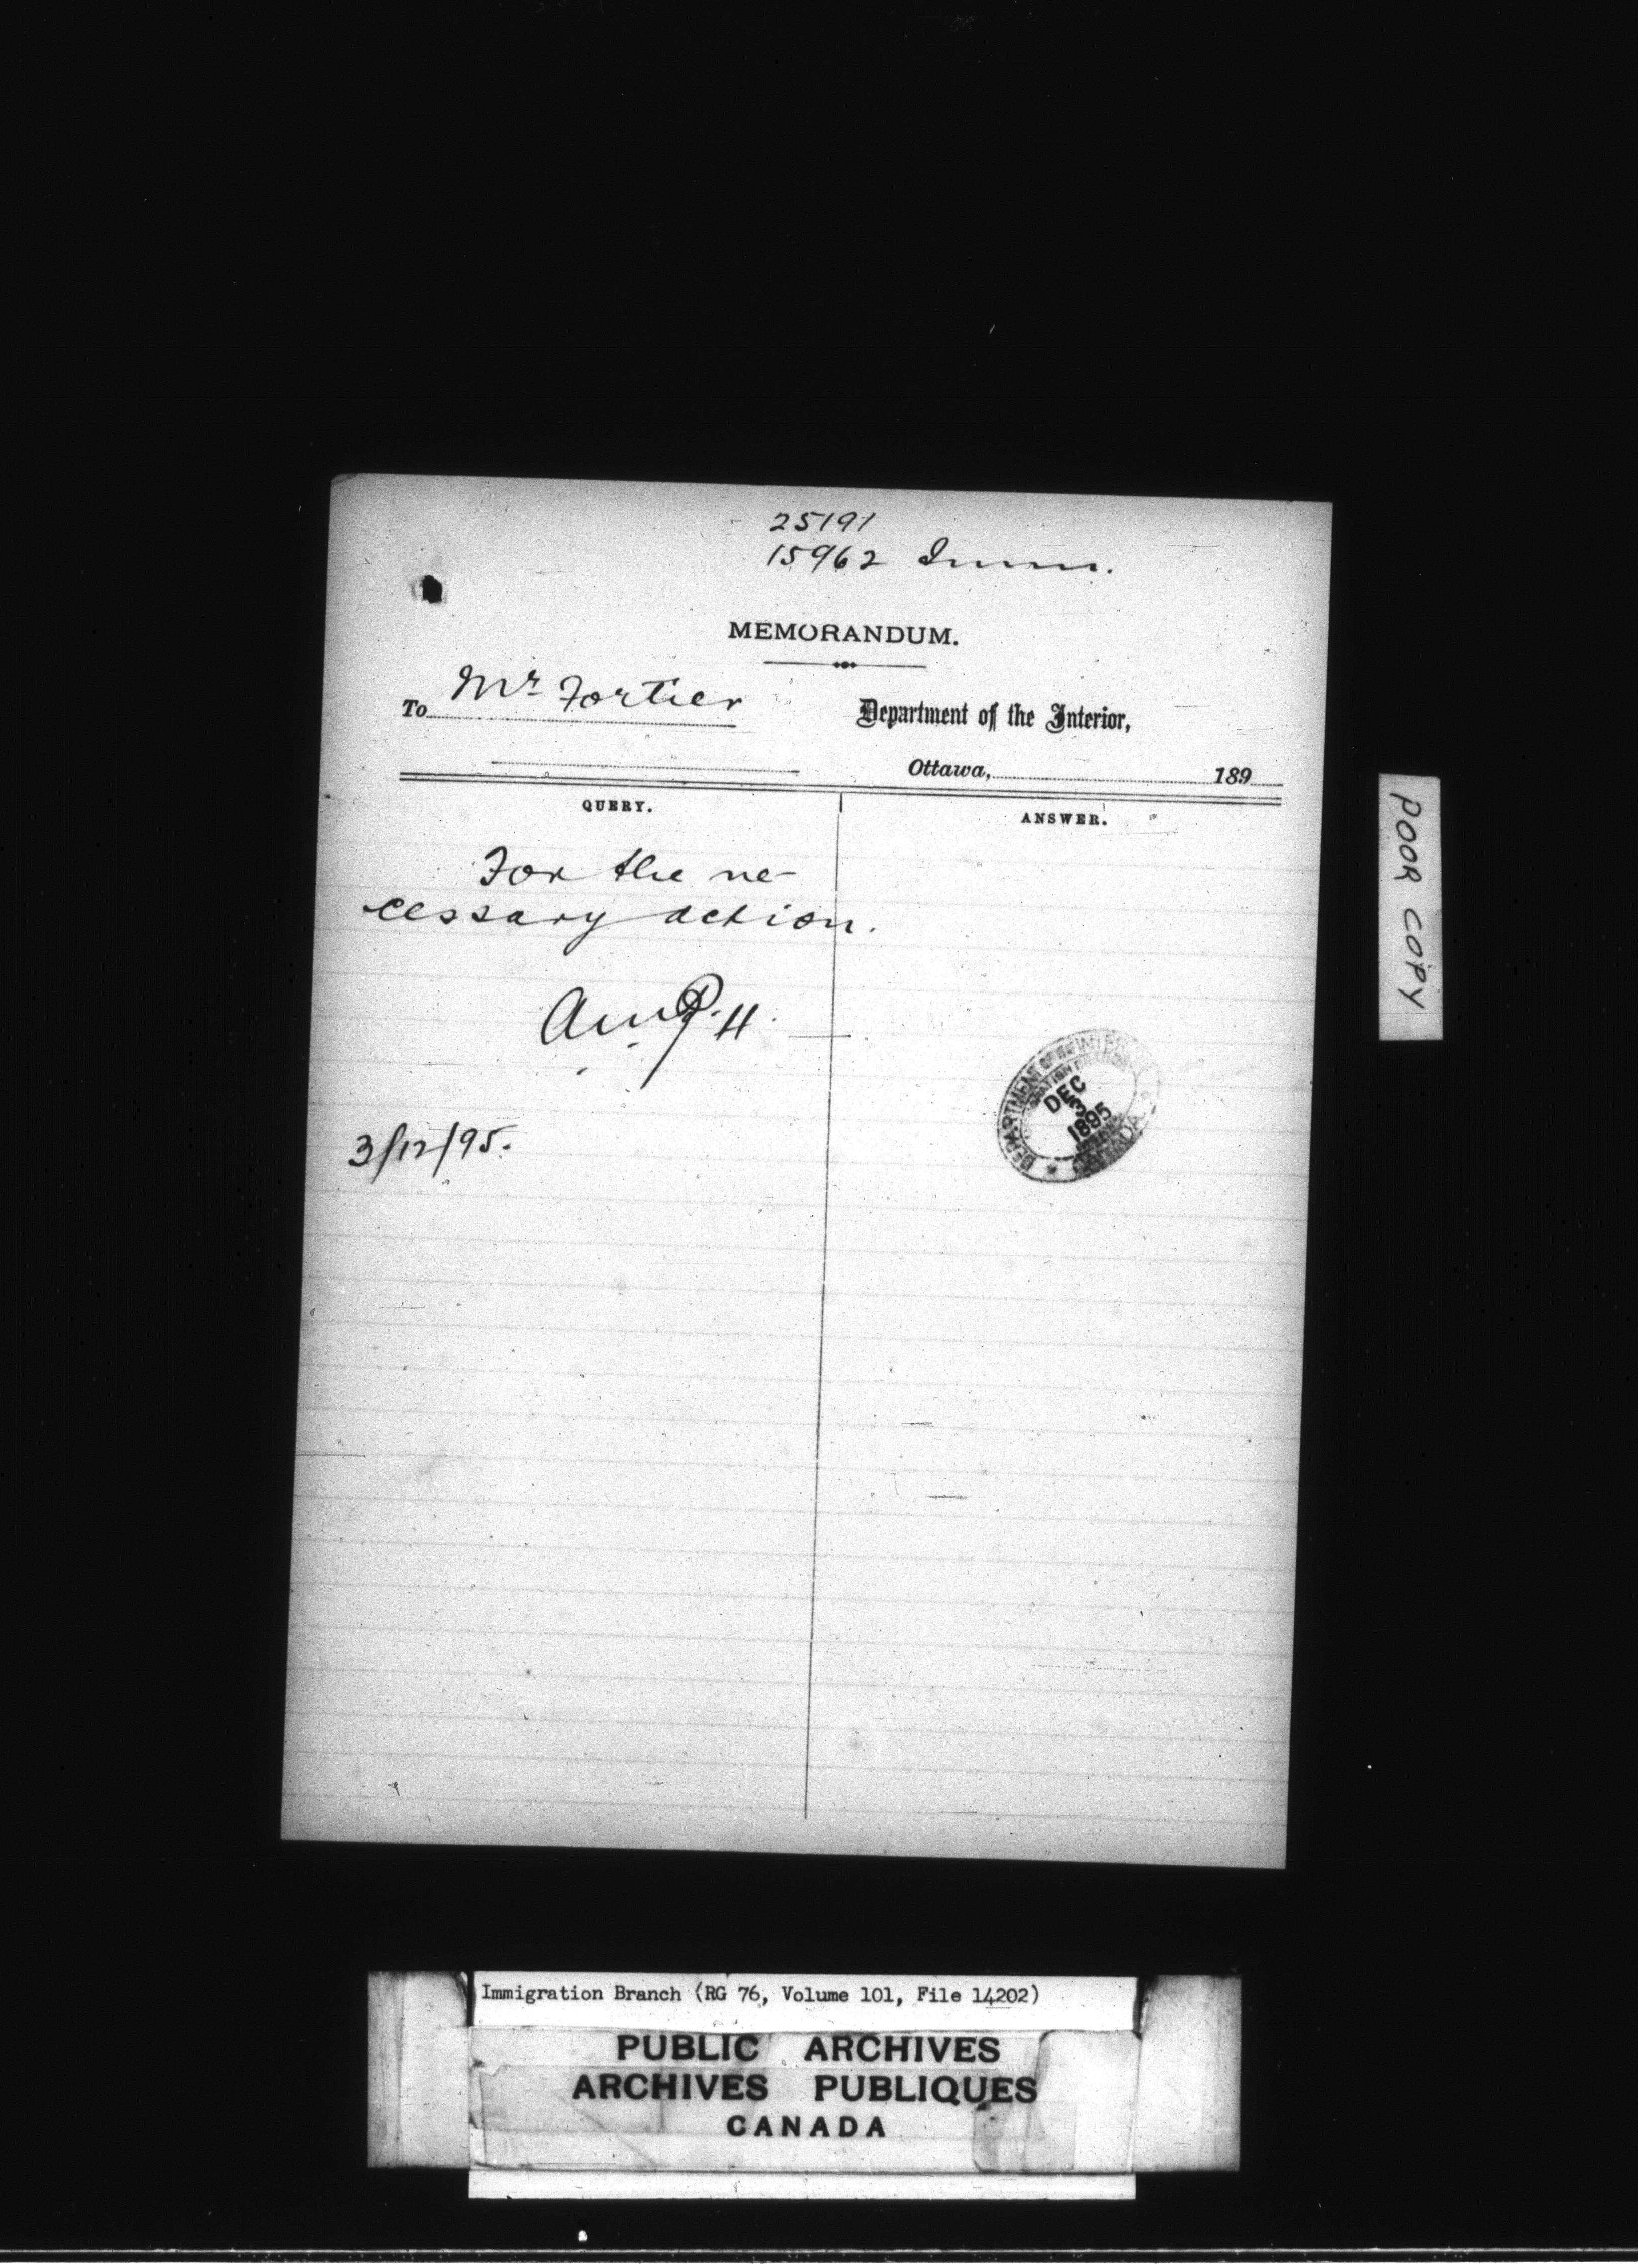 25191
15962 Imm.
MEMORANDUM.
To Mr Fortier
Department of the Interior,
Ottawa, 189
QUERY.
ANSWER.
For the ne-
cessary action.
3/12/95.
DEPARTMENT OF THE INTERIOR
DEC
3
1895
CANADA
POOR COPY
Immigration Branch (RG 76, Volume 101, File 14202)
PUBLIC ARCHIVES
ARCHIVES PUBLIQUES
CANADA